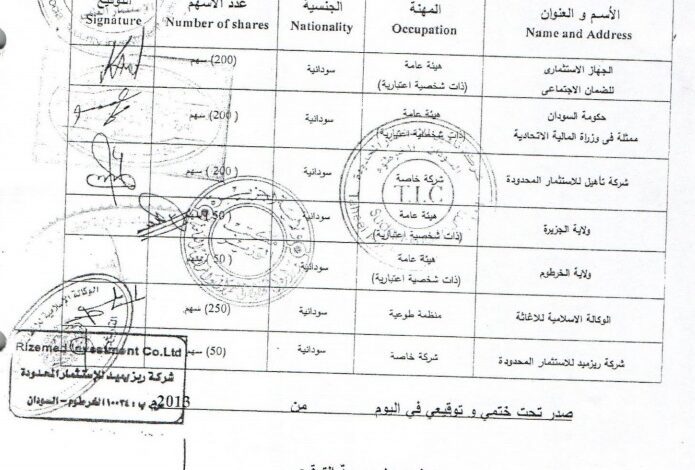 الأسم و العنوان المهنة الجنسية عدد الأسهم التوقيع
Name and Address Occupation Nationality Number of shares Signature
الجهاز الاستثمارى هيئة عامة سودانية (200) سهم
للضمان الاجتماعى (ذات شخصية اعتبارية)
حكومة السودان هيئة عامة سودانية (200) سهم
ممثلة فى وزراة المالية الاتحادية (ذات شخصية اعتبارية)
شركة تأهيل للاستثمار المحدودة شركة خاصة سودانية (200) سهم
T.I.C
ولاية الجزيرة هيئة عامة سودانية (50) سهم
(ذات شخصية اعتبارية)
ولاية الخرطوم هيئة عامة سودانية (50) سهم
(ذات شخصية اعتبارية)
الوكالة الاسلامية للاغاثة منظمة طوعية سودانية (250) سهم
شركة ريزميد للاستثمار المحدودة شركة خاصة سودانية (50) سهم
Rizemed Investment Co.Ltd
شركة ريزميد للإستثمار المحدودة
ص ب : ١٠٠٣٤ الخرطوم - السودان
صدر تحت ختمي و توقيعي في اليوم من 2013م